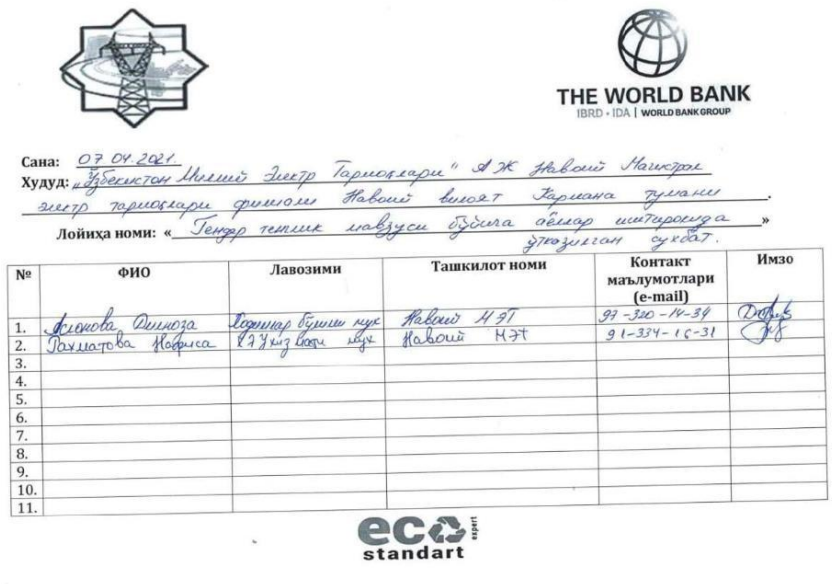 THE WORLD BANK
IBRD • IDA | WORLD BANK GROUP
Сана: 07.04.2021.
Худуд: „Ўзбекистон Миллий Электр Тармоқлари" АЖ Навоий Магистрал
электр тармоқлари филиали Навоий вилоят Кармана тумани.
Лойиҳа номи: « Гендер тенглик мавзуси бўйича аёллар иштирокида »
ўтказилган сухбат.
№ ФИО Лавозими Ташкилот номи Контакт маълумотлари (e-mail) Имзо
1. Дилноза Ходимлар бўлими Навоий МЭТ 97-320-14-34
2. Рахматова Нафиса Навоий МЭТ 91-334-16-31
3.
4.
5.
6.
7.
8.
9.
10.
11.
eco expert
standart